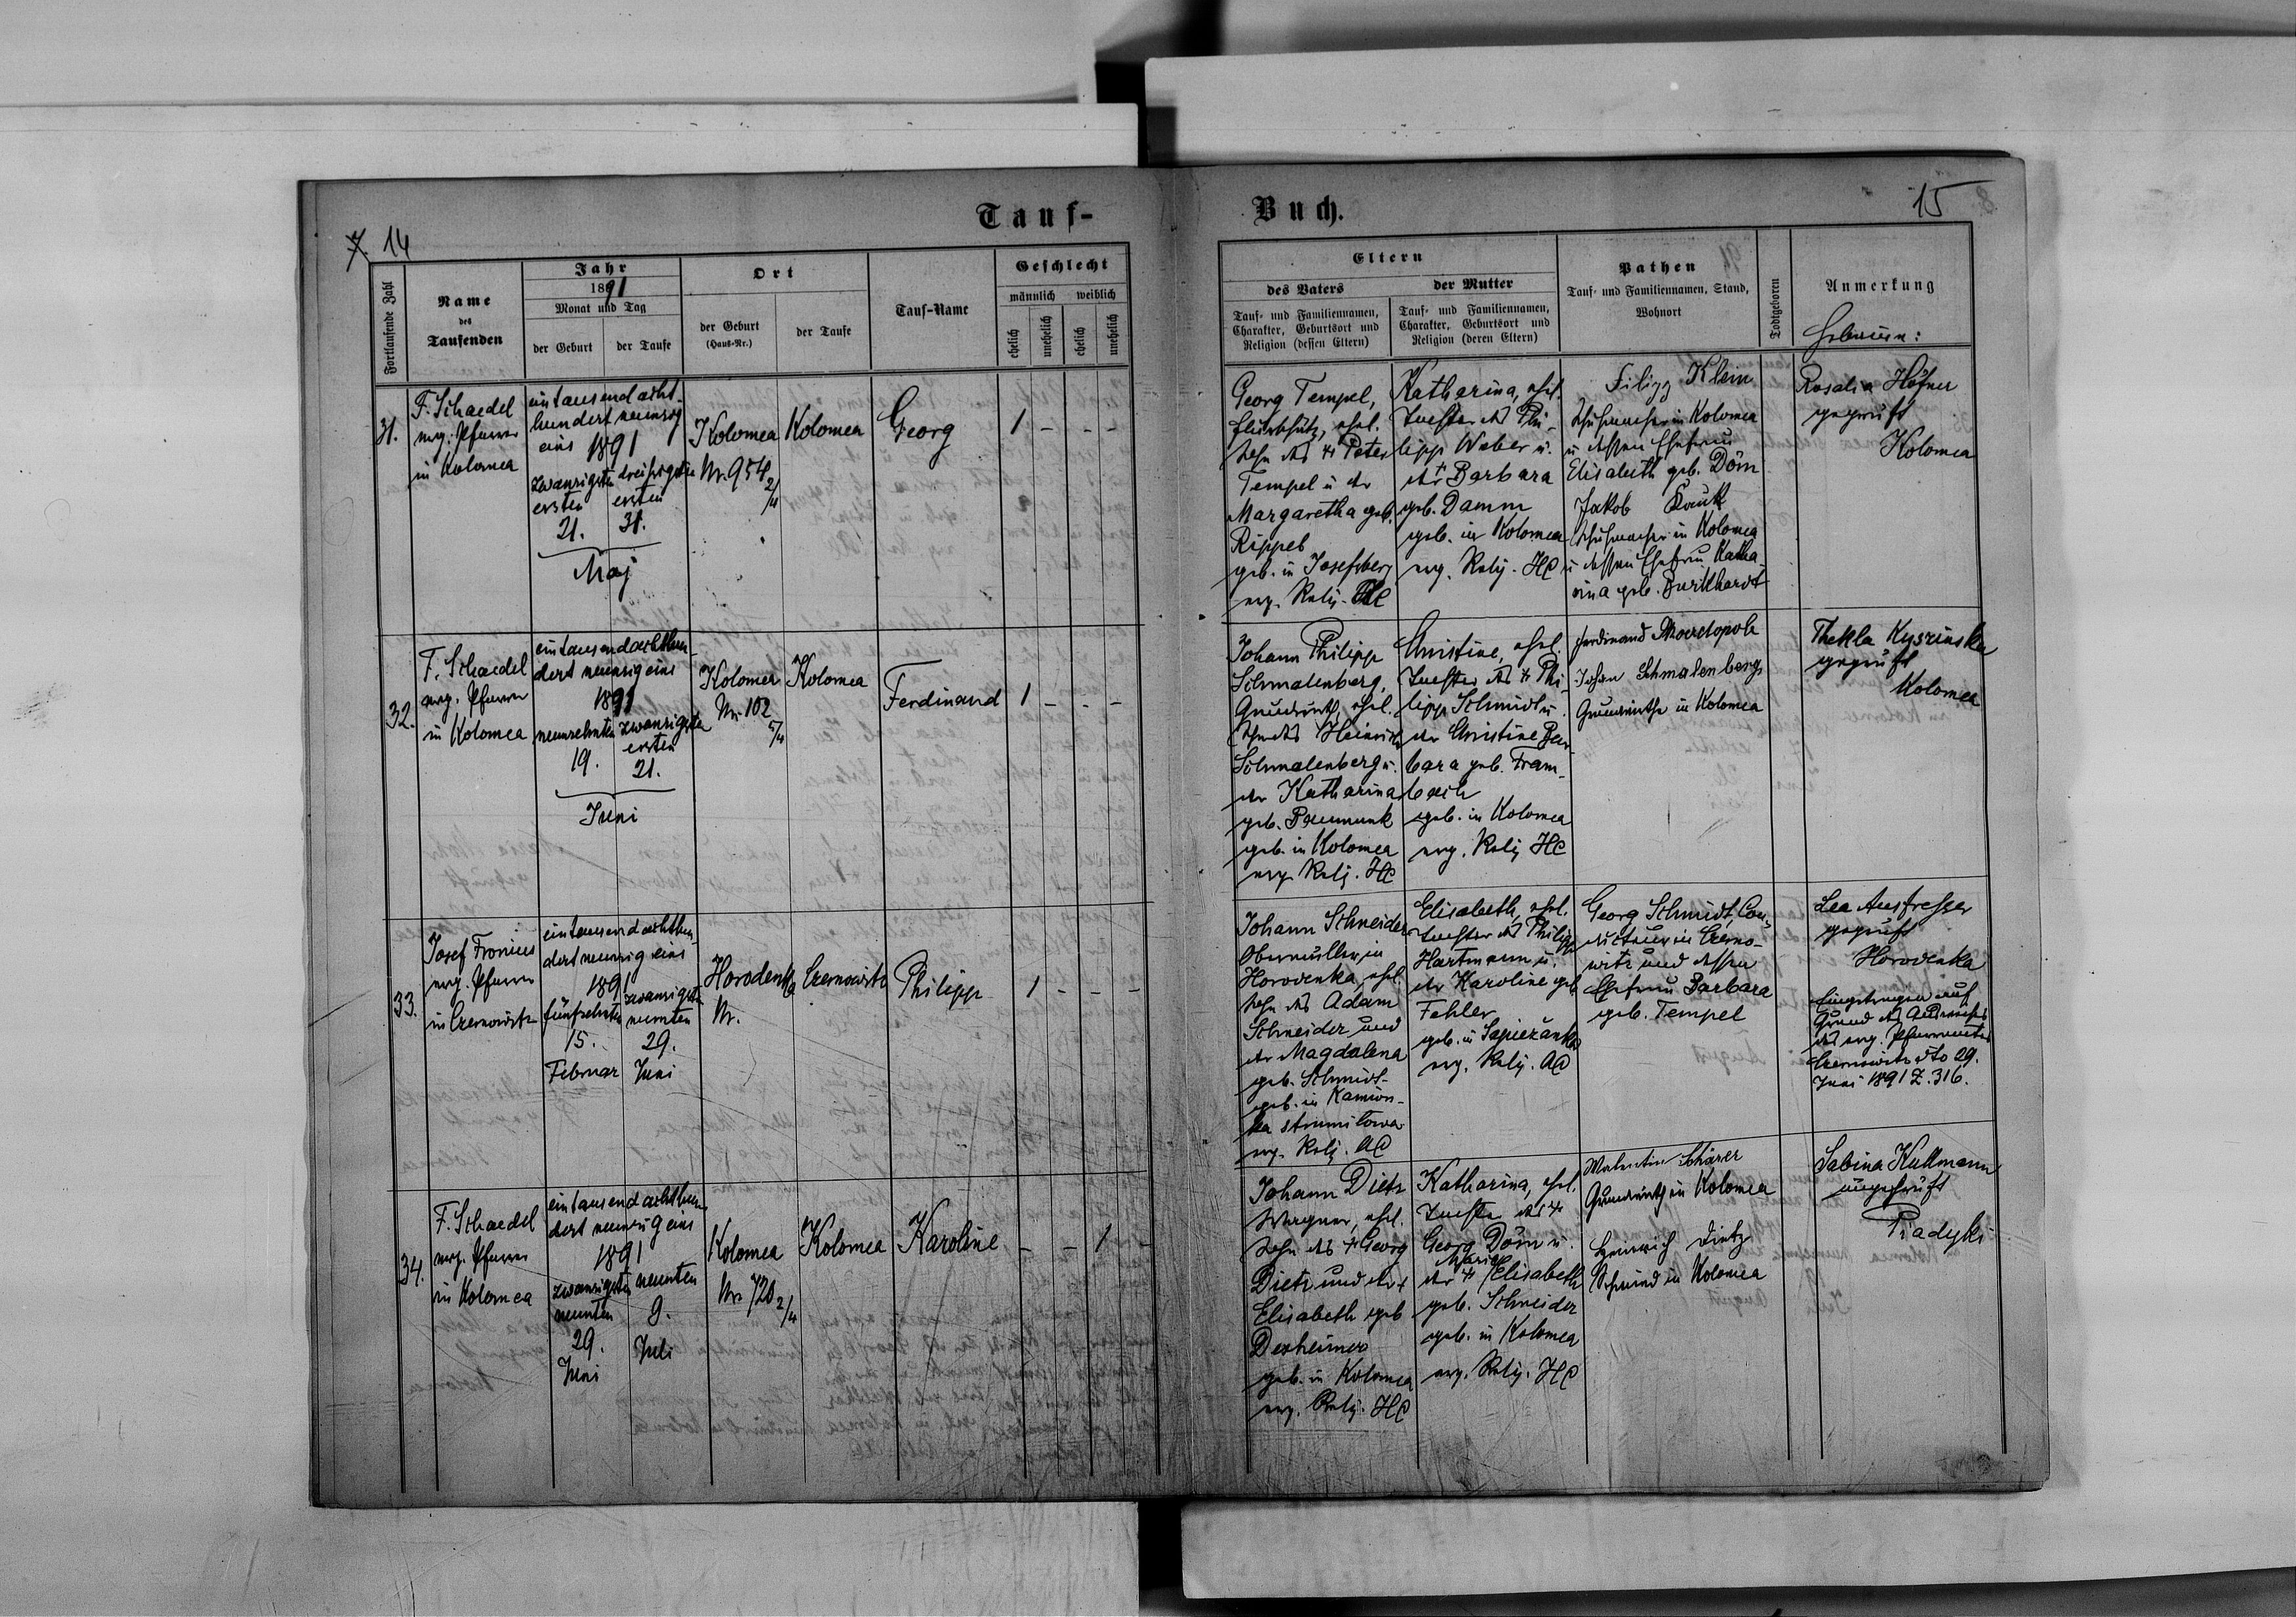 Tauf-
Buch.
7. 14
15
Fortlaufende Zahl
Name
des
Taufenden
Jahr
1891
Monat und Tag
der Geburt
der Taufe
Ort
der Geburt
(Haus-Nr.)
der Taufe
Tauf-Name
Geschlecht
männlich
weiblich
ehelich
unehelich
ehelich
unehelich
Eltern
des Vaters
Tauf- und Familiennamen,
Charakter, Geburtsort und
Religion (dessen Eltern)
der Mutter
Tauf- und Familiennamen,
Charakter, Geburtsort und
Religion (deren Eltern)
Pathen
Tauf- und Familiennamen, Stand,
Wohnort
Todtgeboren
Anmerkung
Hebamme:
31.
F. Schaedel
evg. Pfarrer
in Kolomea
ein tausend acht-
hundert neunzig
eins 1891
zwanzigsten
ersten
21.
dreißigsten
ersten
31.
Maj
Kolomea
Nr. 954 2/4
Kolomea
Georg
1 - - -
Georg Tempel,
ehel.
Sohn des † Peter
Tempel u der
Margaretha geb.
Rippel
geb. in Josefsberg
evg. Relig. HC
Katharina, ehel.
Tochter des Phi-
lipp Weber u.
der † Barbara
geb. Damm
geb. in Kolomea
evg. Relig. HC
Filipp Klein
Schuhmacher in Kolomea
u dessen Ehefrau
Elisabeth geb. Döm
Jakob Kauk
Schuhmacher in Kolomea
u dessen Ehefrau Katha-
rina geb. Burkhardt
Rosalia Höfner
geprüft
Kolomea
32.
F. Schaedel
evg. Pfarrer
in Kolomea
ein tausend achthun-
dert neunzig eins
1891
neunzehnten
19.
zwanzigsten
ersten
21.
Juni
Kolomea
Nr. 102
5/4
Kolomea
Ferdinand
1 - - -
Johann Philipp
Schmalenberg,
Grundwirth, ehel.
Sohn des Heinrich
Schmalenberg u.
der Katharina
geb.
geb. in Kolomea
evg. Relig. HC
Christine, ehel.
Tochter des † Phi-
lipp Schmidt u.
der Christine Bar-
bara geb. Fram-
bach
geb. in Kolomea
evg. Relig HC
Ferdinand
Johan Schmalenberg
Grundwirthe in Kolomea
Thekla Kyszinska
geprüft
Kolomea
33.
Josef Fronius
evg. Pfarrer
in Czernowitz
ein tausend achthun-
dert neunzig eins
1891
fünfzehnten
15.
Februar
zwanzigsten
neunten
29.
Juni
Horodenka
Nr.
Czernowitz
Philipp
1 - - -
Johann Schneider
Obermüller in
Horodenka, ehel.
Sohn des Adam
Schneider und
der Magdalena
geb. Schmidt
geb. in Kamion-
ka strumilowa
evg. Relig. AC
Elisabeth, ehel.
Tochter des Philipp
Hartmann u.
der Karoline geb
Fehler
geb. in Sapieżanka
evg. Relig. AC
Georg Schmidt, Con-
ducteur in Czerno-
witz und dessen
Ehefrau Barbara
geb. Tempel
Lea Ausfresser
geprüft
Horodenka
Eingetragen auf
Grund des Ausweises
des evg. Pfarramtes
Czernowitz dto 29.
Juni 1891 Z. 316.
34.
F. Schaedel
evg. Pfarrer
in Kolomea
ein tausend achthun-
dert neunzig eins
1891
zwanzigsten
neunten
29.
Juni
neunten
9.
Juli
Kolomea
Nr. 720 2/4
Kolomea
Karoline
- - 1 -
Johann Dietz
Wagner, ehel.
Sohn des † Georg
Dietz und der †
Elisabeth geb
Dexheimer
geb. in Kolomea
evg. Relig. HC
Katharina, ehel.
Tochter des †
Georg Döm u.
der † Marie Elisabeth
geb. Schneider
geb. in Kolomea
evg. Relig. HC
Valentin Schärer
Grundwirth in Kolomea
Heinrich Dietz
Schmied in Kolomea
Sabina Kullmann
ungeprüft
Piadyki